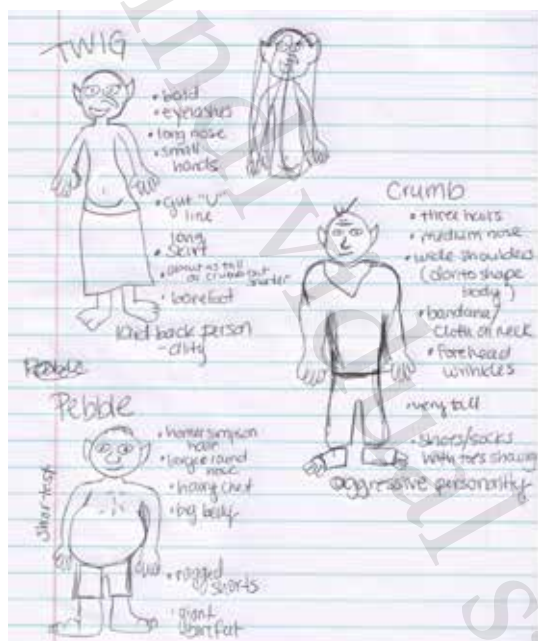 TWIG
• bald
• eyelashes
• long nose
• small
hands
• gut "U"
line
long
• skirt
• about as tall
as crumb but
• barefoot
laid back person
-ality
Crumb
• three hairs
• medium nose
• wide shoulders
body)
• bandana/
cloth on neck
• forehead
wrinkles
• very tall
• shoes/socks
with toes showing
aggressive personality
Pebble
Pebble
shortest
• homer simpson
hair
• large round
nose
• hairy chest
• big belly
• ragged
shorts
• giant
bare feet
Individual s